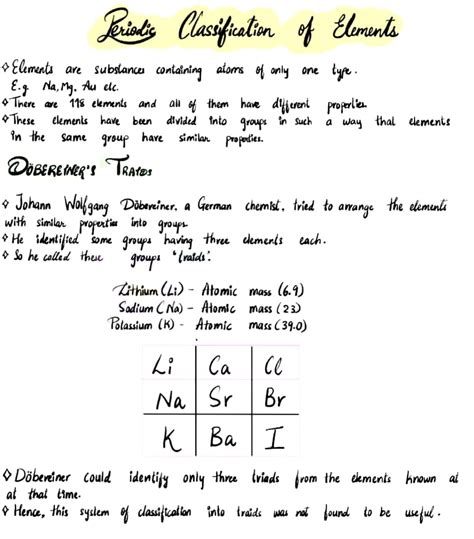 Periodic Classification of Elements
Elements are substances containing atoms of only one type.
E.g Na, Mg, Au etc.
There are 118 elements and all of them have different properties.
These elements have been divided into groups in such a way that elements
in the same group have similar properties.
DÖBEREINER'S TRAIDS
Johann Wolfgang Döbereiner, a German chemist, tried to arrange the elements
with similar properties into groups.
He identified some groups having three elements each.
So he called these groups 'traids'.
Lithium (Li) - Atomic mass (6.9)
Sodium (Na) - Atomic mass (23)
Potassium (K) - Atomic mass (39.0)
Li Ca Cl
Na Sr Br
K Ba I
Döbereiner could identify only three triads from the elements known at
at that time.
Hence, this system of classification into traids was not found to be useful.